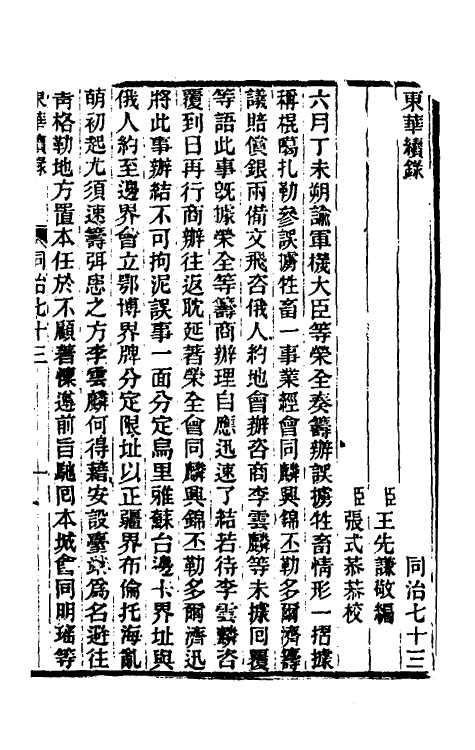 東華續錄
同治七十三
臣王先謙敬編
臣張式恭恭校
六月丁未朔諭軍機大臣等榮全奏籌辦誤擄牲畜情形一摺據
稱棍噶扎勒參誤擄牲畜一事業經會同麟興錦丕勒多爾濟籌
議賠償銀兩備文飛咨俄人約地會辦咨商李雲麟等未據回覆
等語此事旣據榮全等籌商辦理自應迅速了結若待李雲麟咨
覆到日再行商辦往返耽延著榮全會同麟興錦丕勒多爾濟迅
將此事辦結不可拘泥誤事一面分定烏里雅蘇台邊卡界址與
俄人約至邊界會立鄂博界牌分定限址以正疆界布倫托海亂
萌初起尤須速籌弭患之方李雲麟何得藉安設臺站為名避往
青格勒地方置本任於不顧著懍遵前旨馳回本城會同明瑤等
東華續錄
同治七十三
一